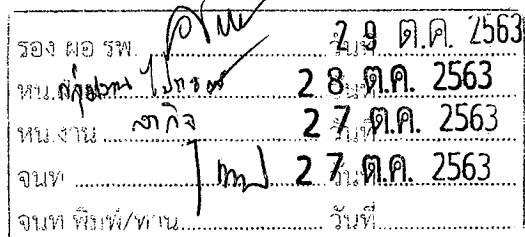 รอง ผอ รพ. วันที่ 29 ต.ค. 2563
หน. วันที่ 28 ต.ค. 2563
หน.งาน วันที่ 27 ต.ค. 2563
จนท วันที่ 27 ต.ค. 2563
จนท พิมพ์/ทาน วันที่